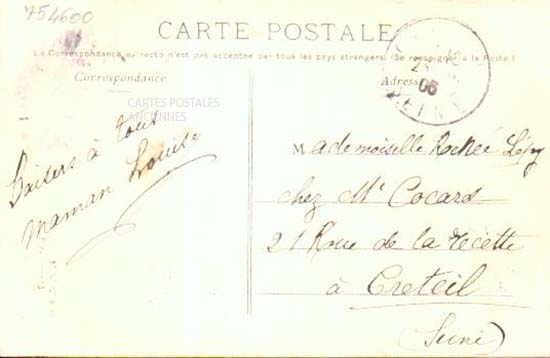 754600
CARTE POSTALE
La Correspondance au recto n'est pas acceptée par tous les pays étrangers. (Se renseigner à la Poste.)
Correspondance
Adresse
06
SEINE
CARTES POSTALES
ANCIENNES
Baisers à tous
maman Louise
Mademoiselle
chez Mr Cocard
21 Roue de la recette
à Creteil
(Seine)